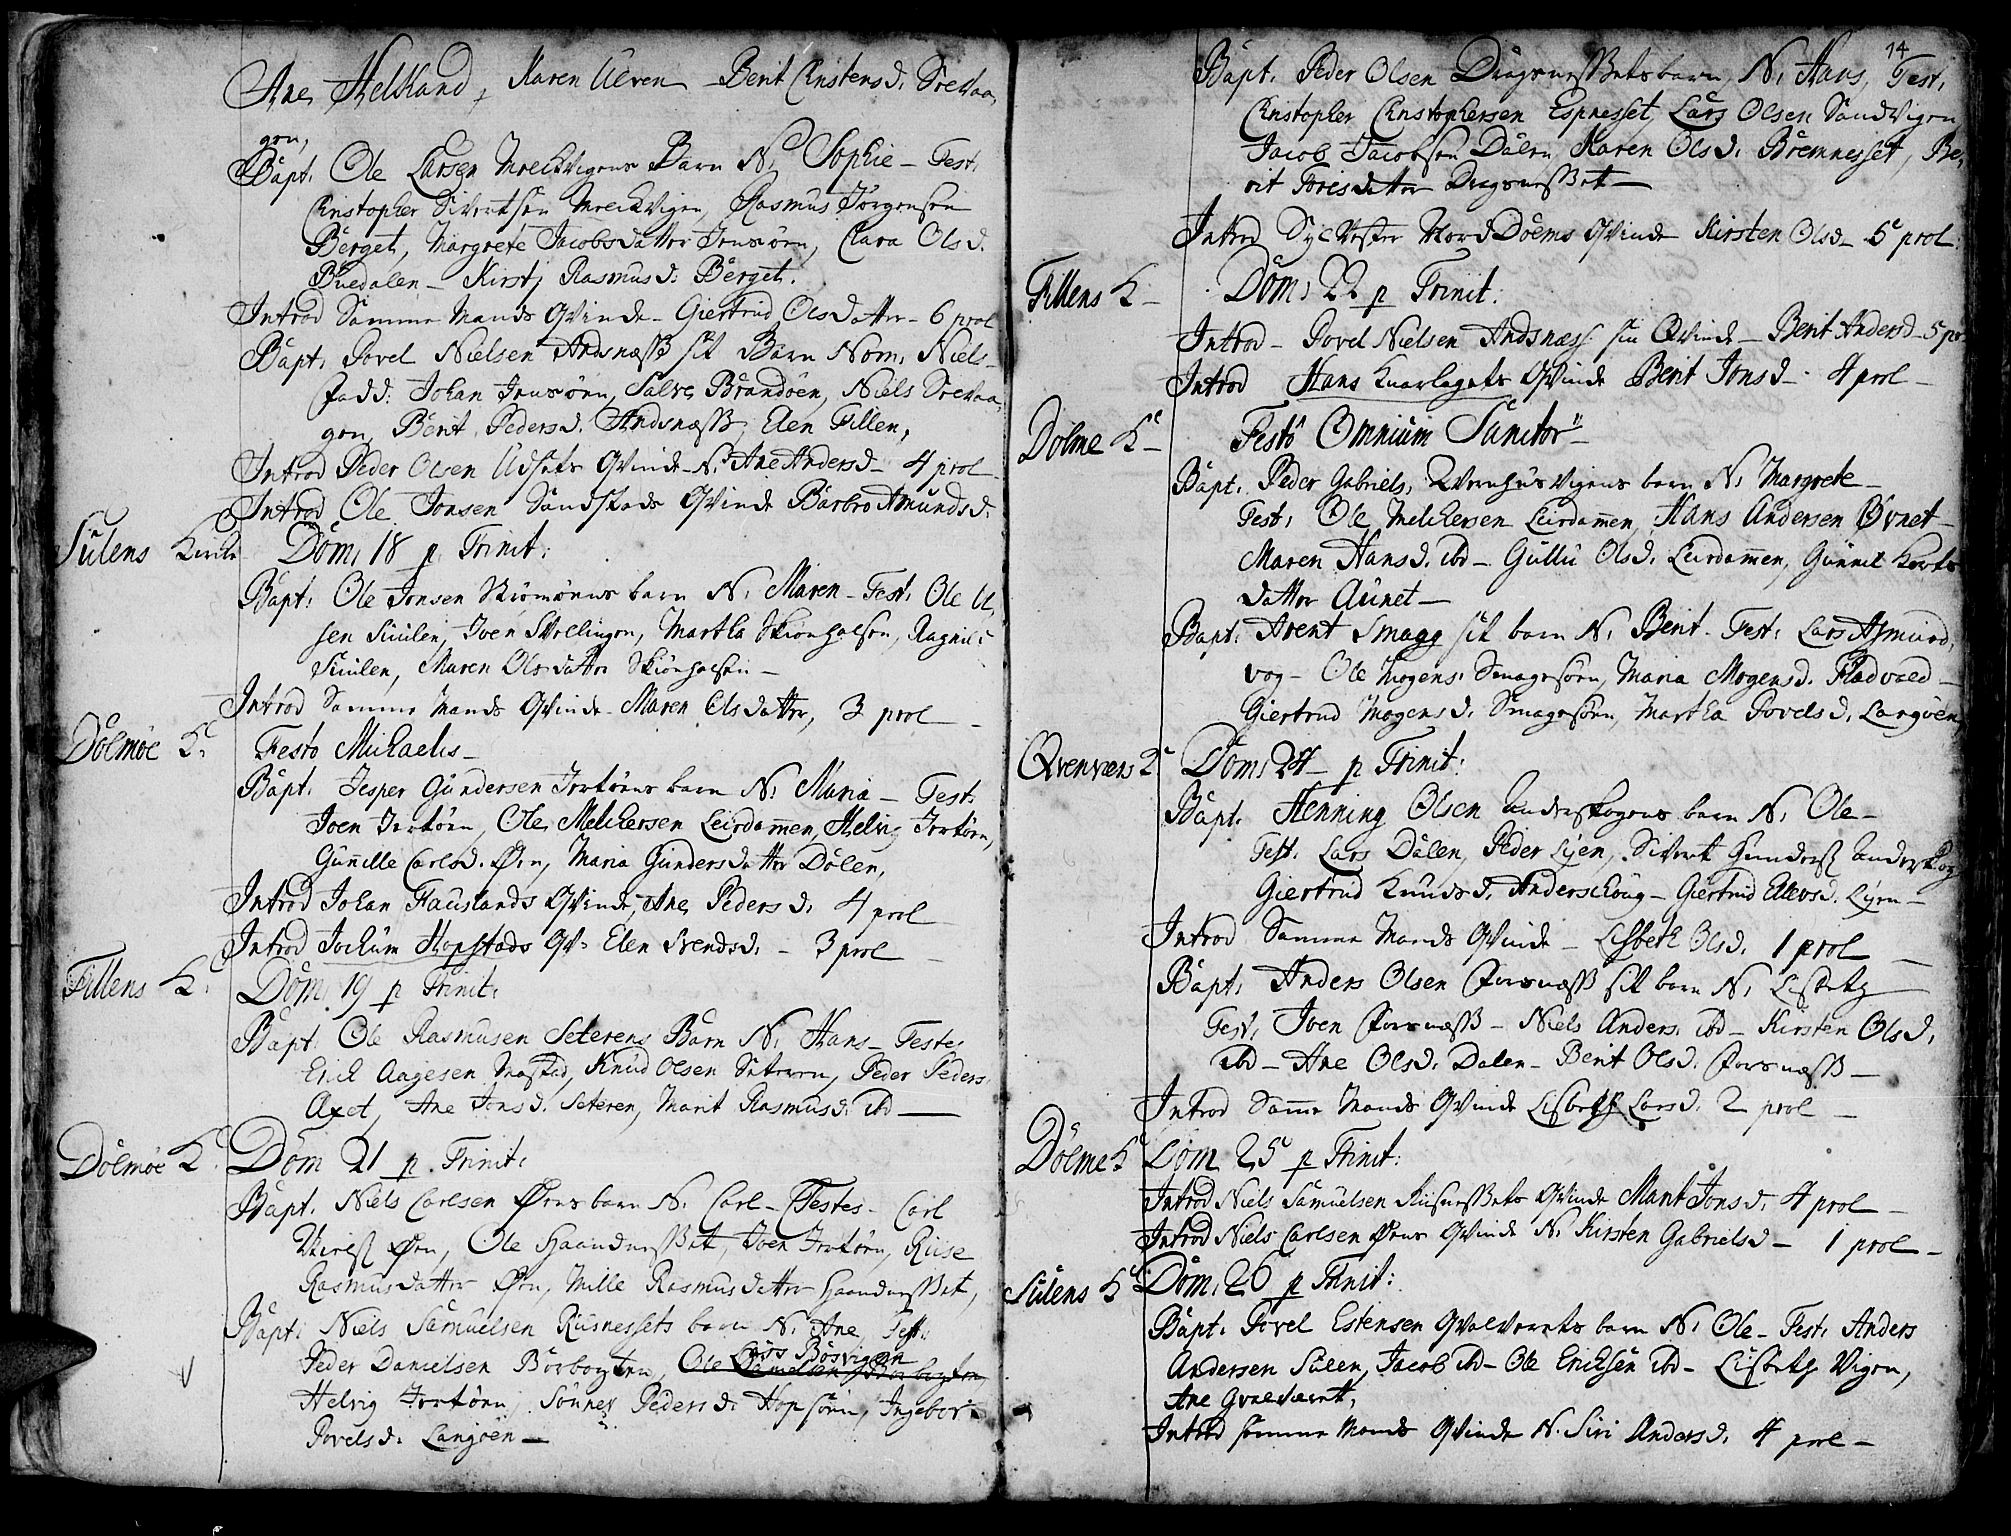 Ane Helsland, Karen Ulven - Berit Christensd. Srevaa,
gen,
Bapt. Ole Larsen Moelkvigens Barn N. Sophie - Test.
Christopher Sivertsen Moelkvigen, Rasmus Jörgensen
Berget, Margrete Jacobsdatter Jensöen, Clara Olsd.
Buedalen - Kirstj Rasmusd. Berget.
Introd Samme Mands Qvinde - Giertrud Olsdatter - 6 prol
Bapt. Povel Nielsen Andsnæss sit Barn Nom. Niels -
Fadd: Johan Jensöen, Salve Brandöen, Niels Srevaa,
gen, Berit Pedersd. Andsnæss, Elen Fillen,
Introd Peder Olsen Udsets Qvinde - N. Ane Andersd - 4 prol
Introd Ole Jonsen Sandstads Qvinde Barbro Amundsd.
Sulens Kirke Dom. 18 p Trinit:
Bapt. Ole Jonsen barn N. Maren - Test. Ole Ol,
sen Suulen, Joen Skollingen, Martha Skionhalsen, Ragnild
Suulen, Maren Olsdatter Skionhalsen -
Introd Samme Mands Qvinde - Maren Olsdatter, 3 prol -
Dolmöe K. Festo Michaelis -
Bapt. Jesper Gundersen Jextöens barn N. Maria - Test.
Joen Jextöen, Ole Melchersen Leirdamen, Helvig Jextöen,
Gunnille Carlsd. Öen, Maria Gundersdatter Dolen,
Introd Johan Fauslands Qvinde, Ane Pedersd. 4 prol
Introd Jochum Hopstads Qv: Elen Svendsd. - 3 prol -
Fillens K. Dom. 19 p Trinit:
Bapt. Ole Rasmusen Seterens Barn N. Hans - Testes
Erick Aagesen Mastad, Knud Olsen Seteren, Peder Peders.
Axet, Ane Jonsd. Seteren, Marit Rasmusd. ibd -
Dolmöe K. Dom 21 p. Trinit:
Bapt. Niels Carlsen Öens barn N. Carl - Testes - Carl
Öen, Ole Haandnesset, Joen Jextöen, Riise
Rasmusdatter Öen, Mille Rasmusdatter Haandnesset,
Bapt: Niels Samuelsen Riisnessets barn N. Ane, Test:
Lars Bösvigen
Peder Danielsen Börbogten, Ole Danielsen Börbogten,
Helvig Jextöen, Sönnev Pedersd. Hopsöen, Ingebor
Povelsd. Langöen -
14
Bapt. Peder Olsen Dragsnessets barn, N. Hans, Test.
Christopher Christophersen Espnesset, Lars Olsen Sandvigen
Jacob Jacobsen Dalen, Karen Olsd. Bremnesset, Be,
rit Jorisdatter Dragsnesset -
Introd Sylvester NordDöems Qvinde Kirsten Olsd - 5 prol.
Fillens K - Dom. 22 p Trinit:
Introd - Povel Nielsen Andsnæss sin Qvinde - Berit Andersd - 5 pr
Introd Hans Knarlagets Qvinde Berit Jonsd - 4 prol -
Dolme K - Festo Omnium Sanctor -
Bapt. Peder Gabriels. Qvernhusvigens barn N. Margrete -
Test. Ole Melchersen Leirdamen, Hans Andersen Övnet -
Maren Hansd. ibd - Gullu Olsd. Leirdamen, Gunnil Korts
datter Aunet -
Bapt: Arent Smagg sit barn N. Berit - Test: Lars Asmund,
vog - Ole Mogens. Smagesöen, Maria Mogensd. Fladvaed -
Giertrud Mogensd. Smagesöen, Martha Povelsd. Langöen
Qvenvær K Dom. 24 p Trinit:
Bapt. Henning Olsen Anderskogens barn N. Ole -
Test. Lars Dalen, Peder Lÿen, Sivert Gunders Anderskog
Giertrud Knudsd. Anderschoug - Giertrud Ellevsd. Lÿen -
Introd Samme Mands Qvinde - Lisbeth Olsd. 1 prol -
Bapt. Anders Olsen Forsnæss sit barn N. Lisbeth
Test. Joen Forsnæss - Niels Anders. ibd - Kirsten Olsd.
ibd - Ane Olsd. Dalen - Berit Olsd. Forsnæss -
Introd Same Mands Qvinde Lisbeth Larsd. 2 prol -
Dölme K Dom 25 p Trinit:
Introd Niels Samuelsen Riisnessets Qvinde Marit Jonsd. 4 prol -
Introd Niels Carlsen Öens Qvinde N. Kirsten Gabrielsd - 1 prol -
Sulens K Dom. 26 p Trinit:
Bapt. Povel Estensen Qvalværets barn N. Ole - Test. Anders
Andersen Sulen, Jacob ibd - Ole Erichsen ibd - Lisbeth Vigen,
Ane Qvalværet,
Introd samme Mands Qvinde N. Siri Andersd. 4 prol -